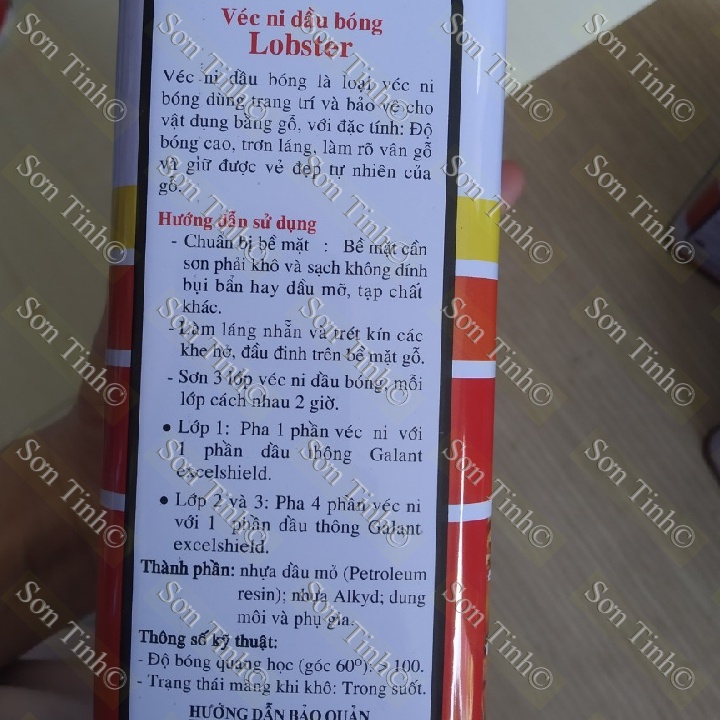 Véc ni dầu bóng
Lobster
Véc ni dầu bóng là loại véc ni
bóng dùng trang trí và bảo vệ cho
vật dụng bằng gỗ, với đặc tính: Độ
bóng cao, trơn láng, làm rõ vân gỗ
và giữ được vẻ đẹp tự nhiên của
gỗ.
Hướng dẫn sử dụng
- Chuẩn bị bề mặt : Bề mặt cần
sơn phải khô và sạch không dính
bụi bẩn hay dầu mỡ, tạp chất
khác.
- Làm láng nhẵn và trét kín các
khe hở, đầu đinh trên bề mặt gỗ.
- Sơn 3 lớp véc ni dầu bóng, mỗi
lớp cách nhau 2 giờ.
• Lớp 1: Pha 1 phần véc ni với
1 phần dầu thông Galant
excelshield.
• Lớp 2 và 3: Pha 4 phần véc ni
với 1 phần dầu thông Galant
excelshield.
Thành phần: nhựa dầu mỏ (Petroleum
resin); nhựa Alkyd; dung
môi và phụ gia.
Thông số kỹ thuật:
- Độ bóng quang học (góc 60º): > 100.
- Trạng thái màng khi khô: Trong suốt.
HƯỚNG DẪN BẢO QUẢN
Sơn Tinh©